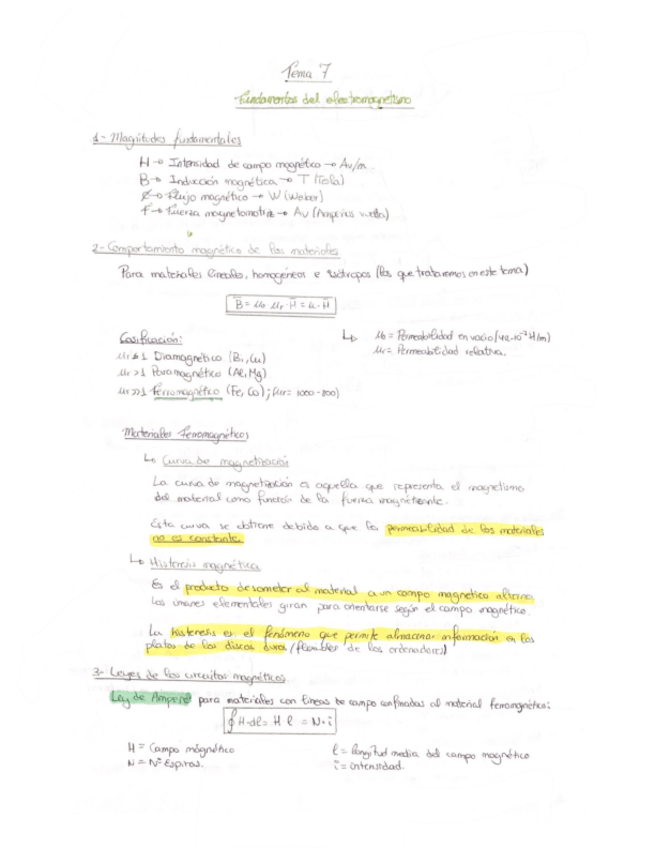 Tema 7
Fundamentos del electromagnetismo
1- Magnitudes fundamentales
H → Intensidad de campo magnético → Av/m
B → Inducción magnética → T (Tesla)
Ø → Flujo magnético → W (Weber)
F → Fuerza magnetomotriz → Av (Amperios vuelta)
2- Comportamiento magnético de los materiales
Para materiales lineales, homogéneos e isótropos (los que trataremos en este tema)
B = μo μr · H = μ · H
Clasificación:
↳ μo = Permeabilidad en vacio (4π·10⁻⁷ H/m)
μr ≤ 1 Diamagnético (Bi, Cu)
μr = Permeabilidad relativa.
μr > 1 Paramagnético (Al, Mg)
μr >> 1 Ferromagnético (Fe, Co); (μr = 1000 - 800)
Materiales Ferromagnéticos
↳ Curva de magnetización
La curva de magnetización es aquella que representa el magnetismo
del material como función de la fuerza magnetizante.
Esta curva se obtiene debido a que la permeabilidad de los materiales
no es constante.
↳ Histéresis magnética
Es el producto de someter al material a un campo magnético alterno
los imanes elementales giran para orientarse según el campo magnético
La histéresis es el fenómeno que permite almacenar información en los
platos de los discos duros (flexibles de los ordenadores)
3- Leyes de los circuitos magnéticos
Ley de Ampere para materiales con líneas de campo confinadas al material ferromagnético:
∮ H·dl = H·l = N·i
H = Campo magnético
l = longitud media del campo magnético
N = Nº Espiras.
i = intensidad.